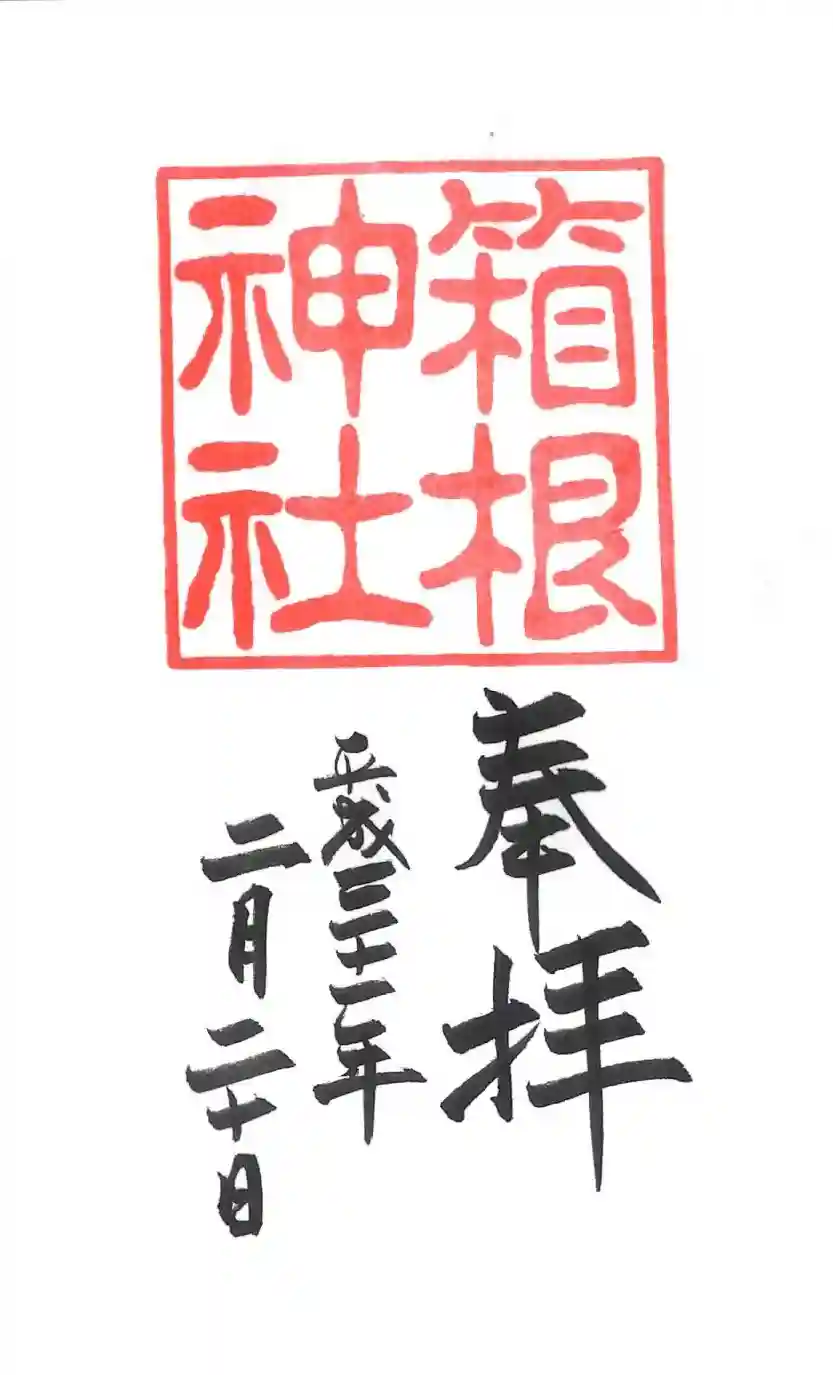 箱根
神社
奉拝
平成三十一年
二月二十日